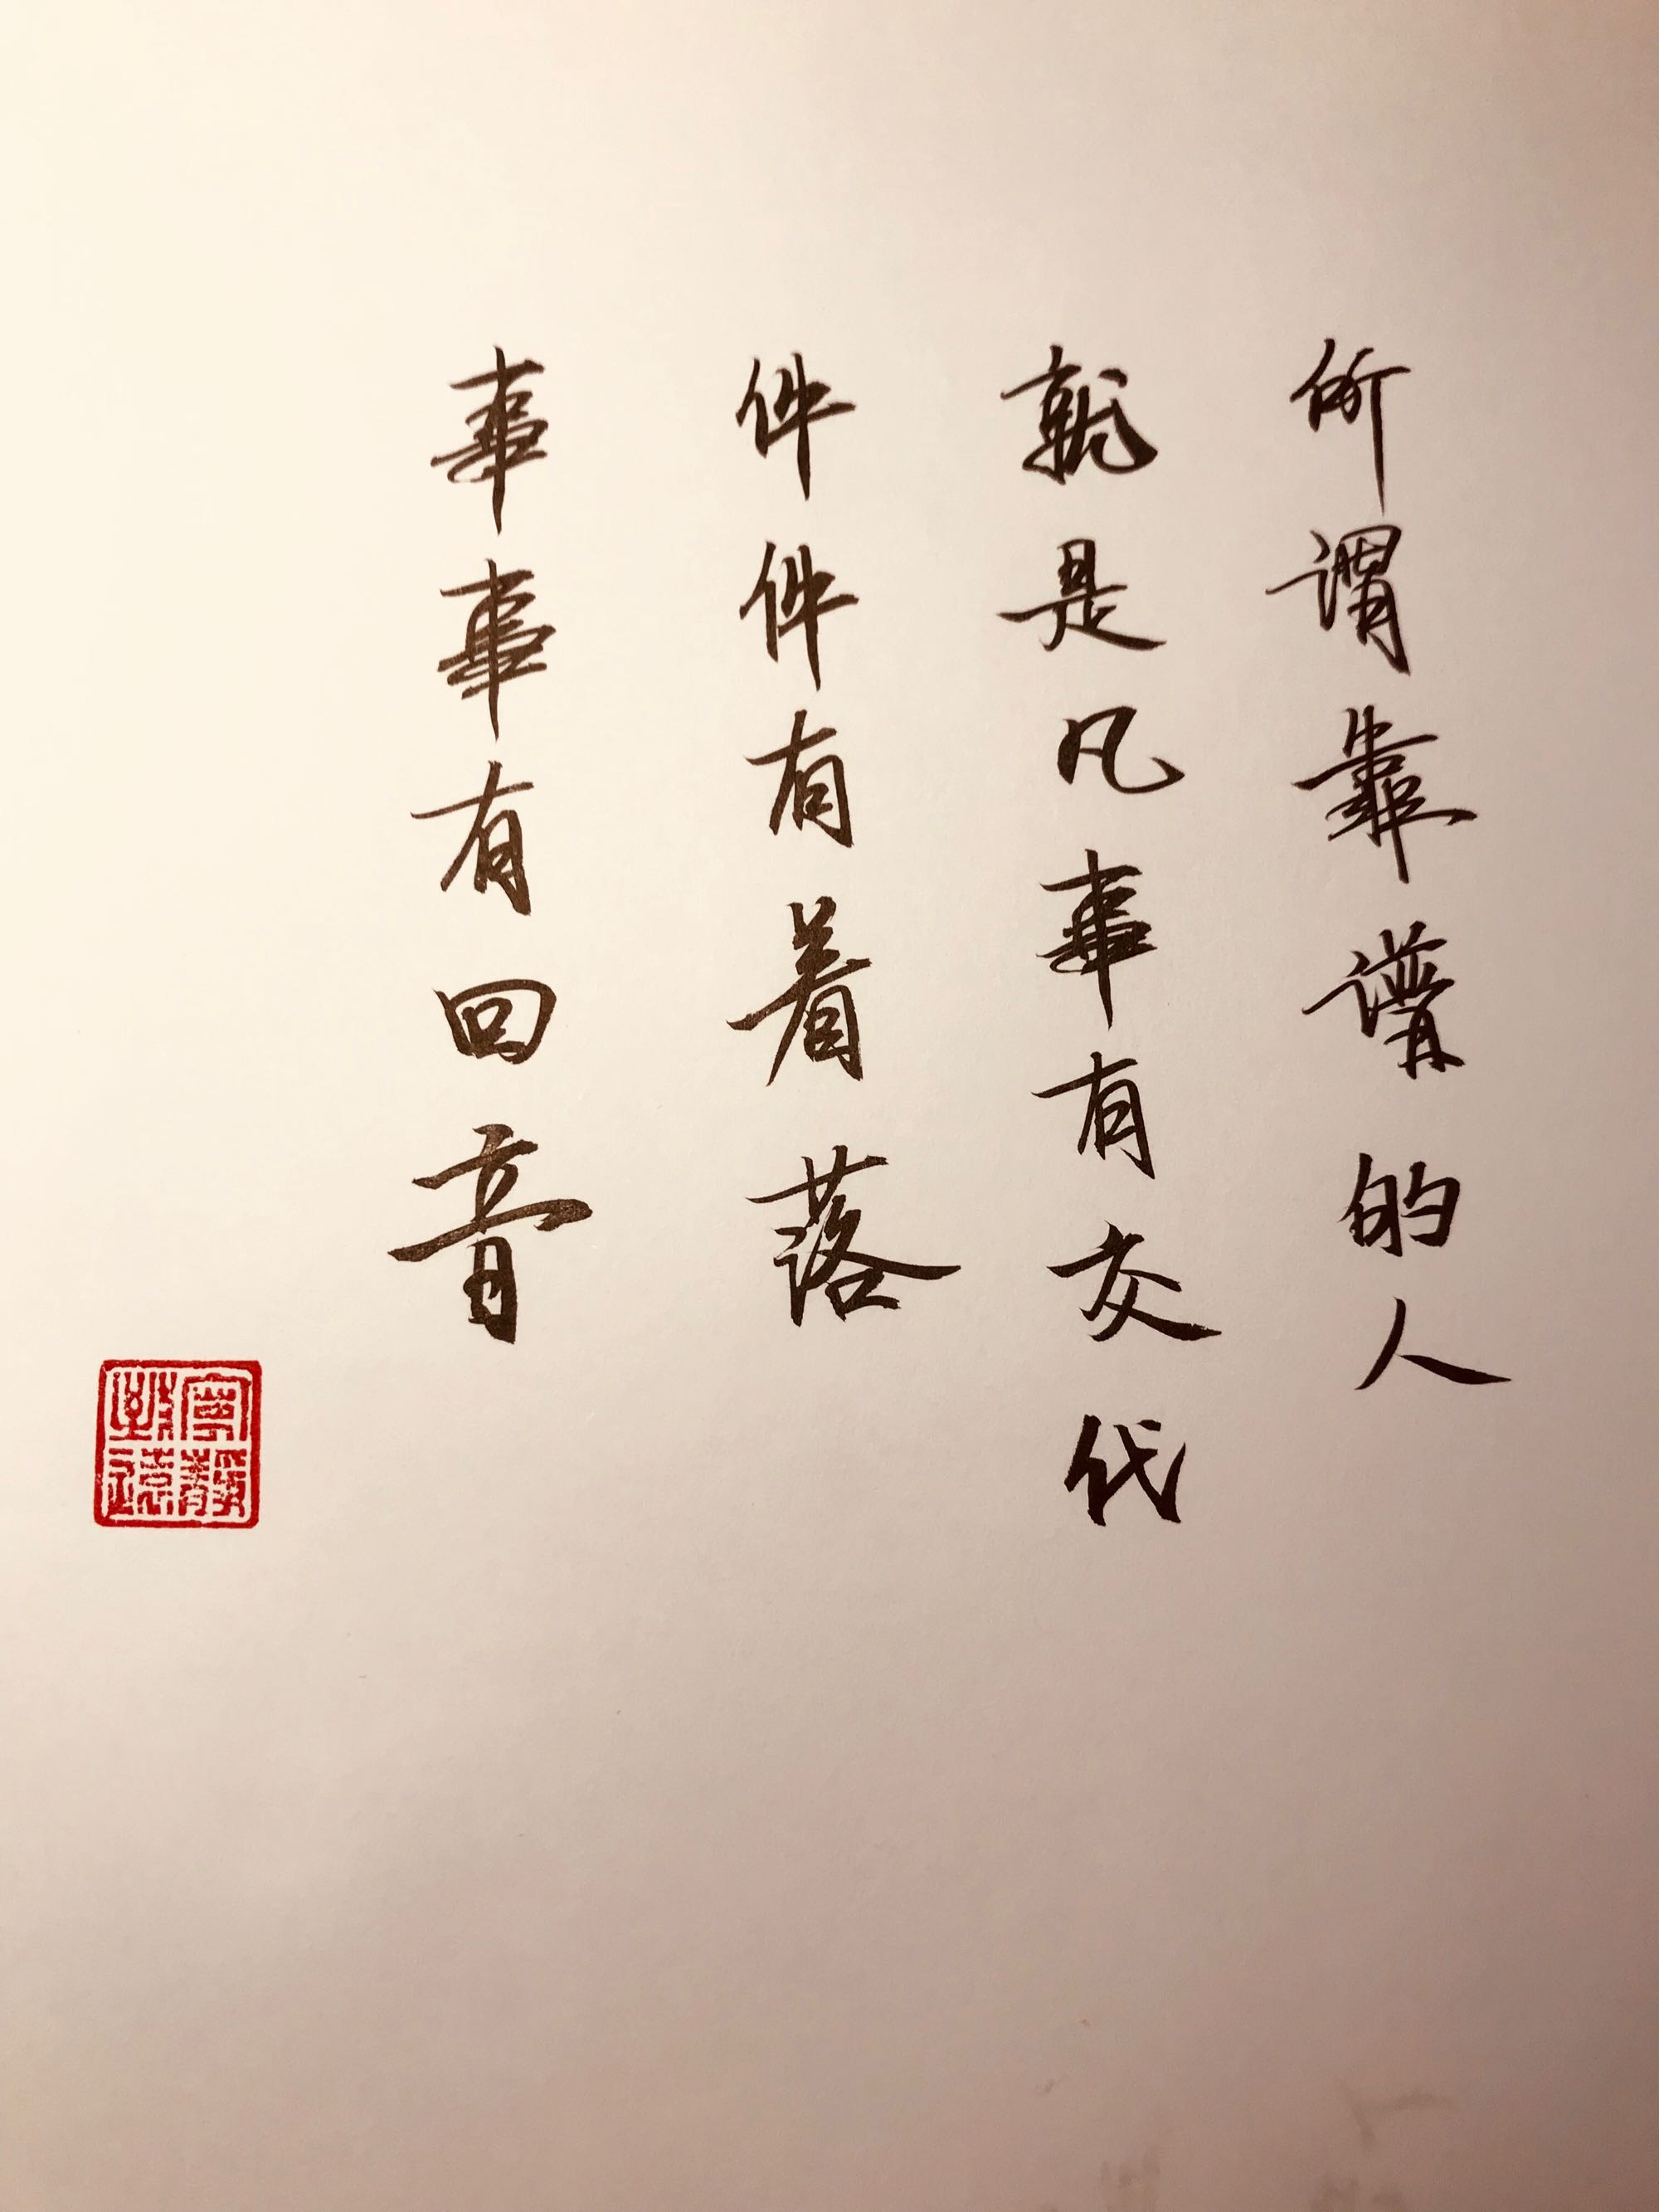 所谓靠谱的人
就是凡事有交代
件件有着落
事事有回音
寧靜致遠